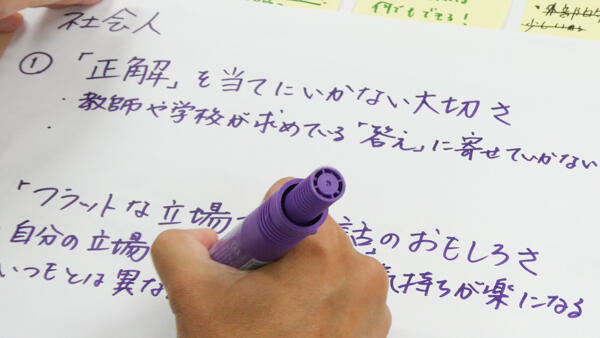 何でもできる！
社会人
① 「正解」を当てにいかない大切さ
・教師や学校が求めている「答え」に寄せていかない
・
「フラットな立場で 話」のおもしろさ
自分の立場 気持ちが楽になる
いつもとは異な